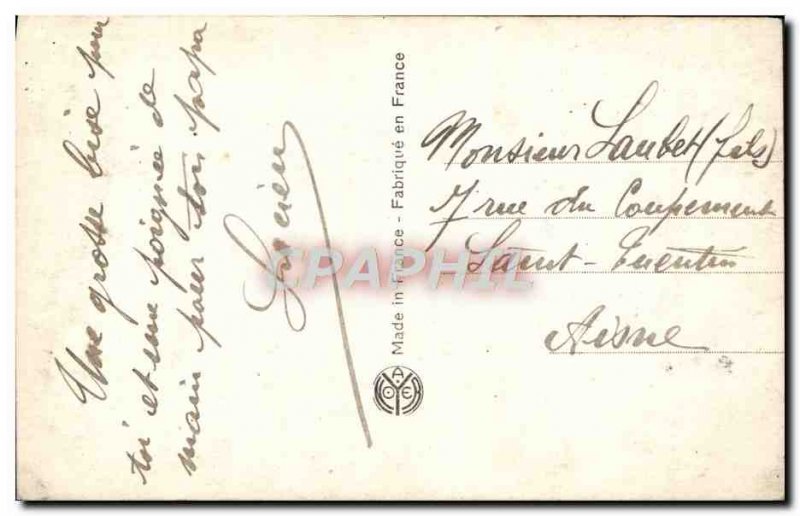 Une grosse bise pour
toi et une poignée de
main pour ton papa
Lucien
Made in France - Fabriqué en France
CPAPHIL
Monsieur Laubet (fils)
7 rue du Coupement
Saint-Quentin
Aisne